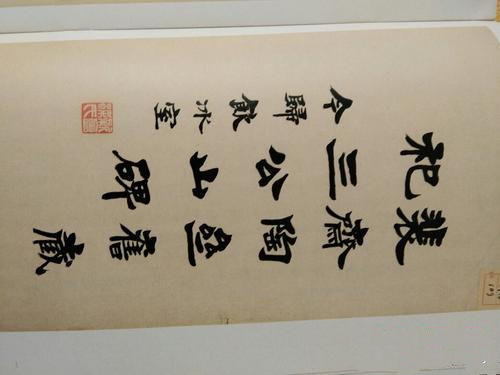 裴齋陶盦舊藏
祀三公山碑
今歸飲冰室